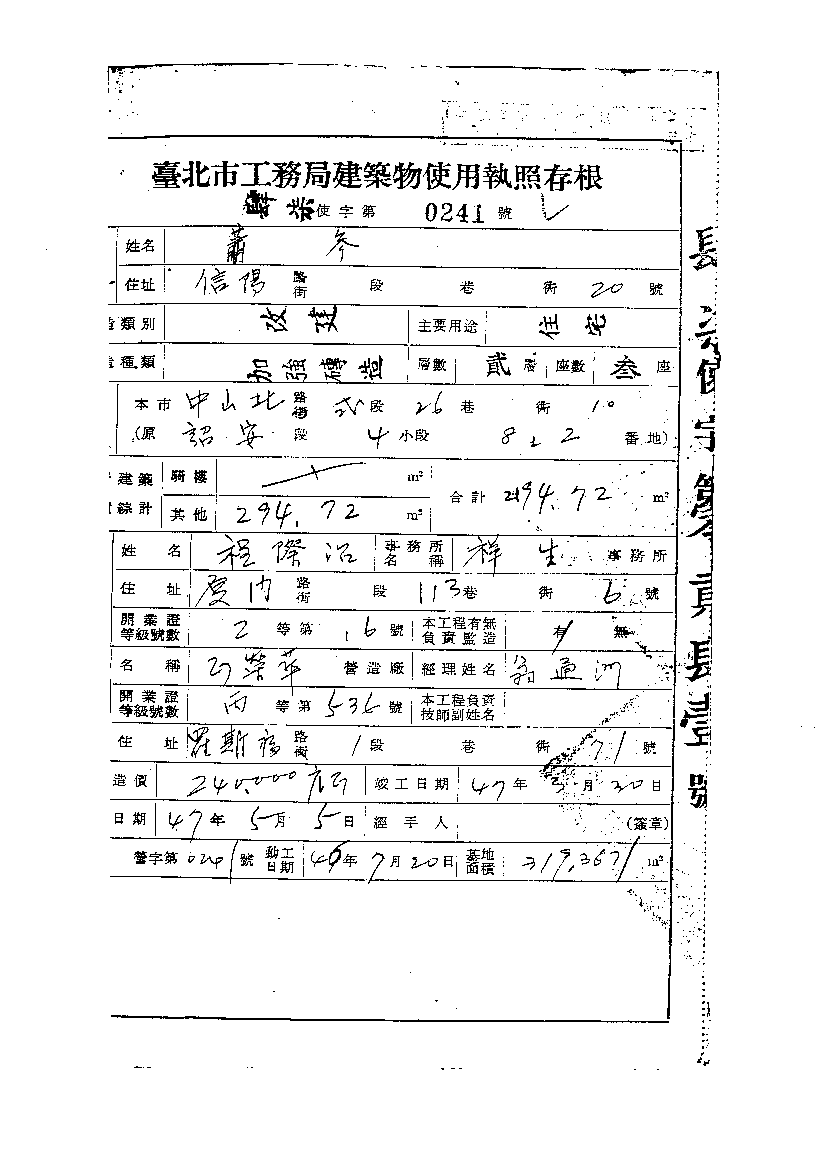 臺北市工務局建築物使用執照存根
肆柒使字第 0241 號
姓名 蕭參
住址 信陽 路街 段 巷 衖 20 號
類別 改建 主要用途 住宅
種類 加強磚造 層數 貳層 座數 叁座
本市 中山北 路街 弍段 26巷 衖 10
(原 詔安 段 4小段 8 2 番地)
建築 騎樓 m² 合計 294.72 m²
綜計 其他 294.72 m²
姓名 程際治 事務所名稱 祥生 事務所
住址 廈門 路街 段 113巷 衖 6號
開業證等級號數 2等第 16號 本工程有無負責監造 有 無
名稱 榮華 營造廠 經理姓名 翁 洲
開業證等級號數 丙等第 536號 本工程負責技師副姓名
住址 羅斯福 路街 1段 巷 衖 71號
造價 240,000 竣工日期 47年3月30日
日期 47年5月5日 經手人 (簽章)
營字第 號 動工日期 46年7月20日 基地面積 319.3671 m²
使字第 貳 壹號